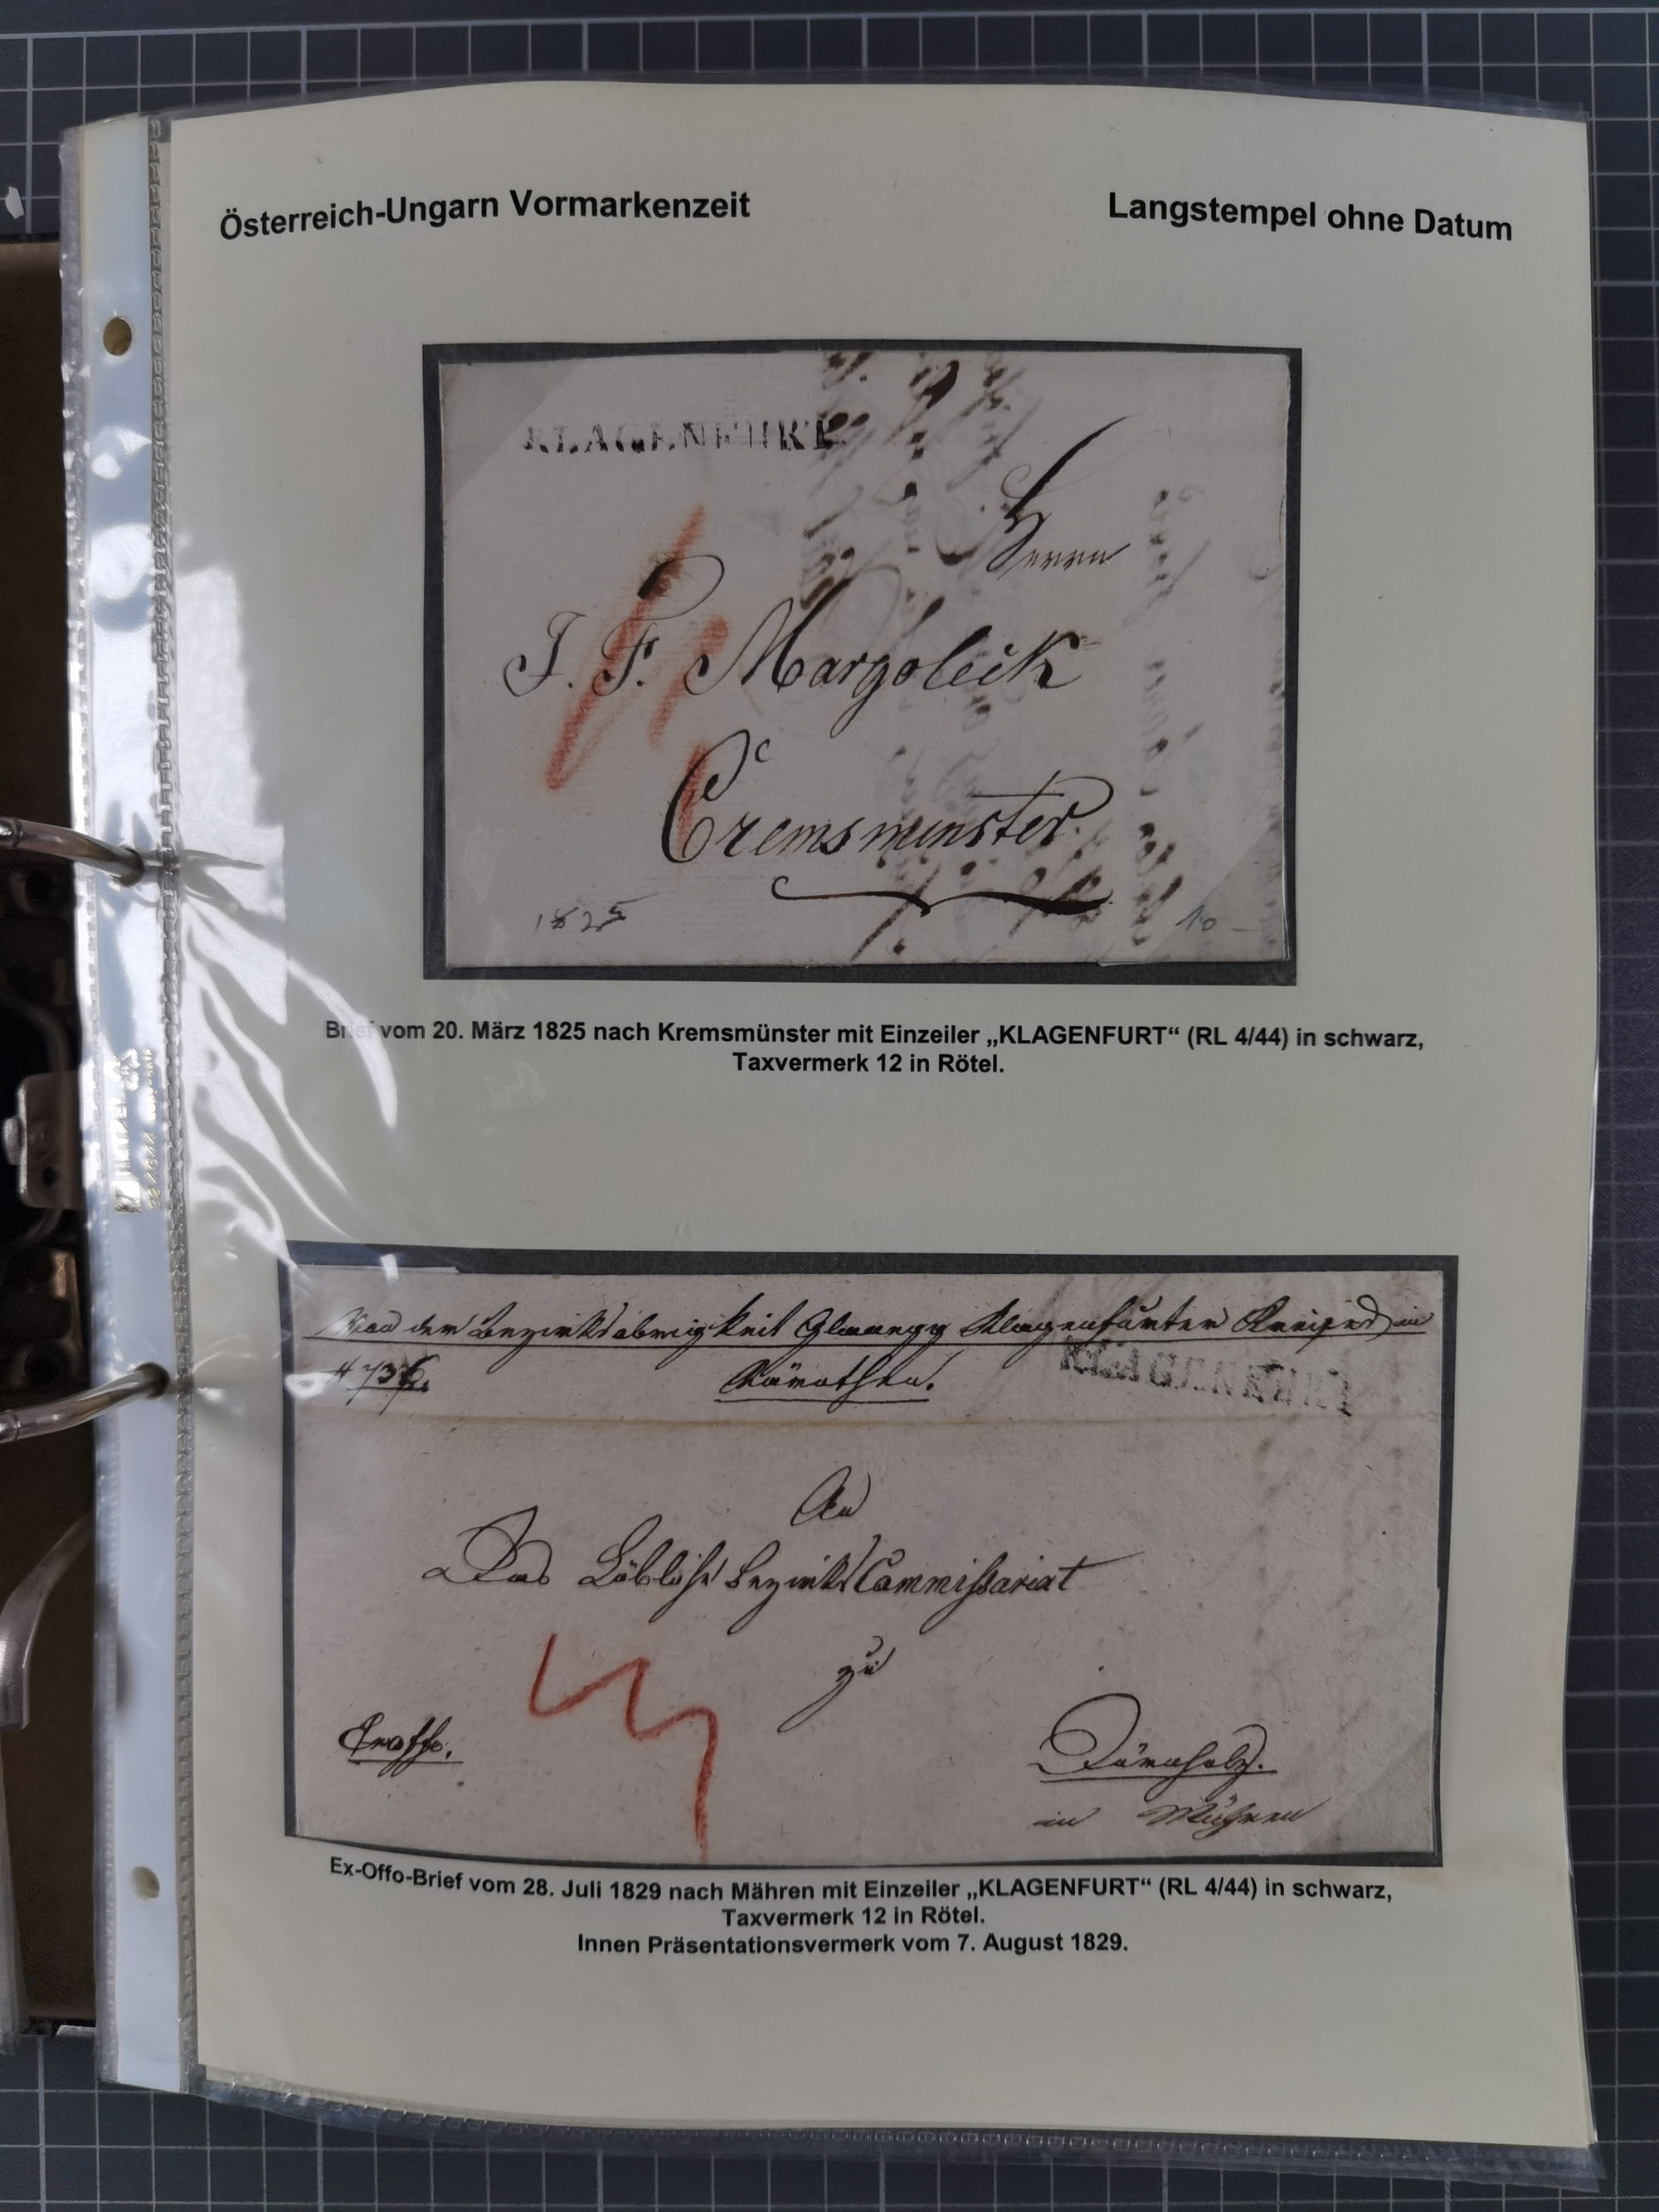 Österreich-Ungarn Vormarkenzeit
Langstempel ohne Datum
KLAGENFURT
Herrn
J. F. Margoleik
Cremsmünster.
1825
10
Brief vom 20. März 1825 nach Kremsmünster mit Einzeiler „KLAGENFURT“ (RL 4/44) in schwarz,
Taxvermerk 12 in Rötel.
Von der Bezirksobrigkeit Klagenfurter Kreises in
Kärnthen.
KLAGENFURT
An
Das Löbliche Bezirks Commissariat
zu
Exoffo.
in Mähren
Ex-Offo-Brief vom 28. Juli 1829 nach Mähren mit Einzeiler „KLAGENFURT“ (RL 4/44) in schwarz,
Taxvermerk 12 in Rötel.
Innen Präsentationsvermerk vom 7. August 1829.